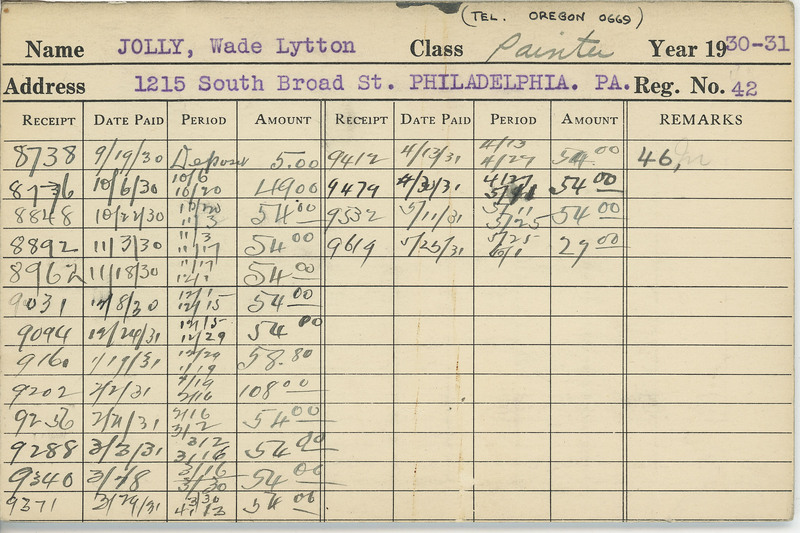 (TEL. OREGON 0669)
Name JOLLY, Wade Lytton Class Painter Year 1930-31
Address 1215 South Broad St. PHILADELPHIA. PA. Reg. No. 42
RECEIPT DATE PAID PERIOD AMOUNT RECEIPT DATE PAID PERIOD AMOUNT REMARKS
8738 9/19/30 Deposit 5.00 9412 4/13/31 4/13 4/27 54.00 46,
10/6/30 10/6 10/20 49 00 9479 4/27 54 00
8848 10/22/30 10/20 11/3 54.00 9532 5/11/31 5/11 5/25 54 00
8892 11/3/30 11/3 11/17 54 00 9619 5/25/31 5/25 27 00
8962 11/18/30 11/17 12/1 54.00
9031 12/8/30 12/1 12/15 54 00
9094 12/15 12/29 54 00
1/19/31 12/29 1/19 58.80
9202 2/2/31 2/16 108 00
2/16 3/2 54 00
9288 3/3/31 3/2 3/16 54 00
9340 3/16 3/30 54 00
9371 3/30 4/13 54 00